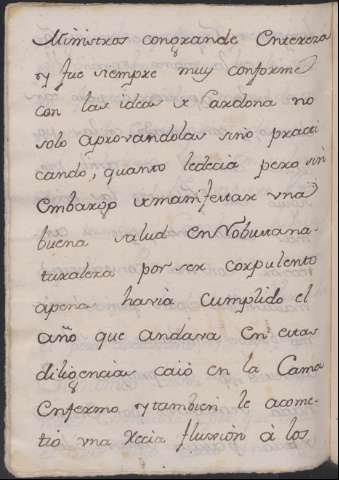 Ministros con grande Entereza
y fue siempre muy conforme
con las ideas de Cardona no
solo aprovandolas sino practi
cando, quanto ledecia pero sin
embargo de manifestar una
buena salud en Robusta na-
turaleza por ser corpulento
apena havia Cumplido el
año que andava en estas
diligencias caió en la Cama
Enfermo y tambien le acome-
tió una Recia fluxión à los